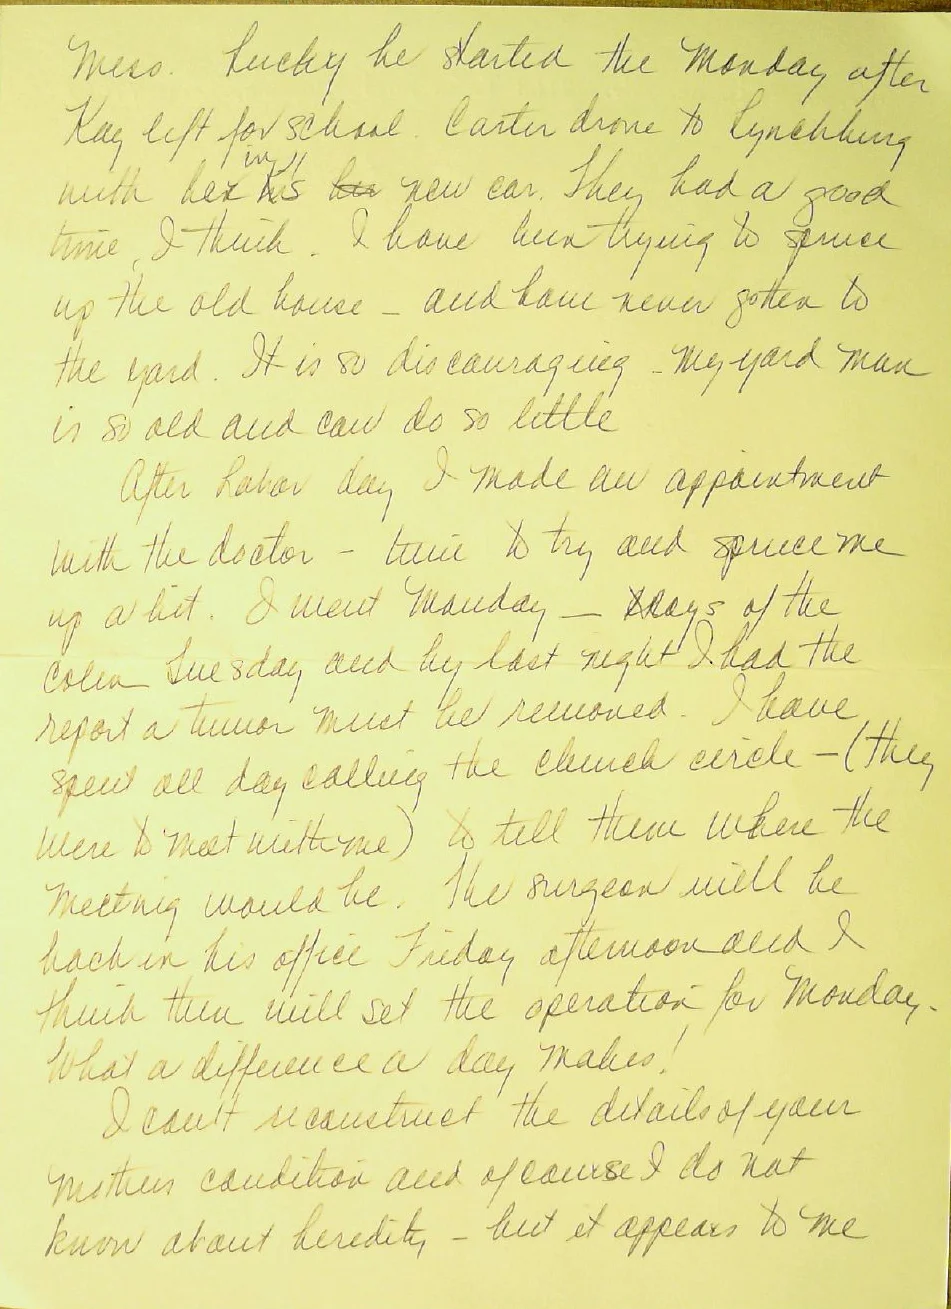 Mess. Lucky he started the Monday after
Kay left for school. Carter drove to Lynchburg
with her in his new car. They had a good
time, I think. I have been trying to spruce
up the old house – and have never gotten to
the yard. It is so discouraging – my yard man
is so old and can do so little
After Labor day I made an appointment
with the doctor – time to try and spruce me
up a bit. I went Monday – Xrays of the
colon Tuesday and by last night I had the
report a tumor must be removed. I have
spent all day calling the church circle – (they
were to meet with me) to tell them where the
meeting would be. The surgeon will be
back in his office Friday afternoon and I
think then will set the operation for Monday.
What a difference a day makes!
I can't reconstruct the details of your
mothers condition and of course I do not
know about heredity – but it appears to me